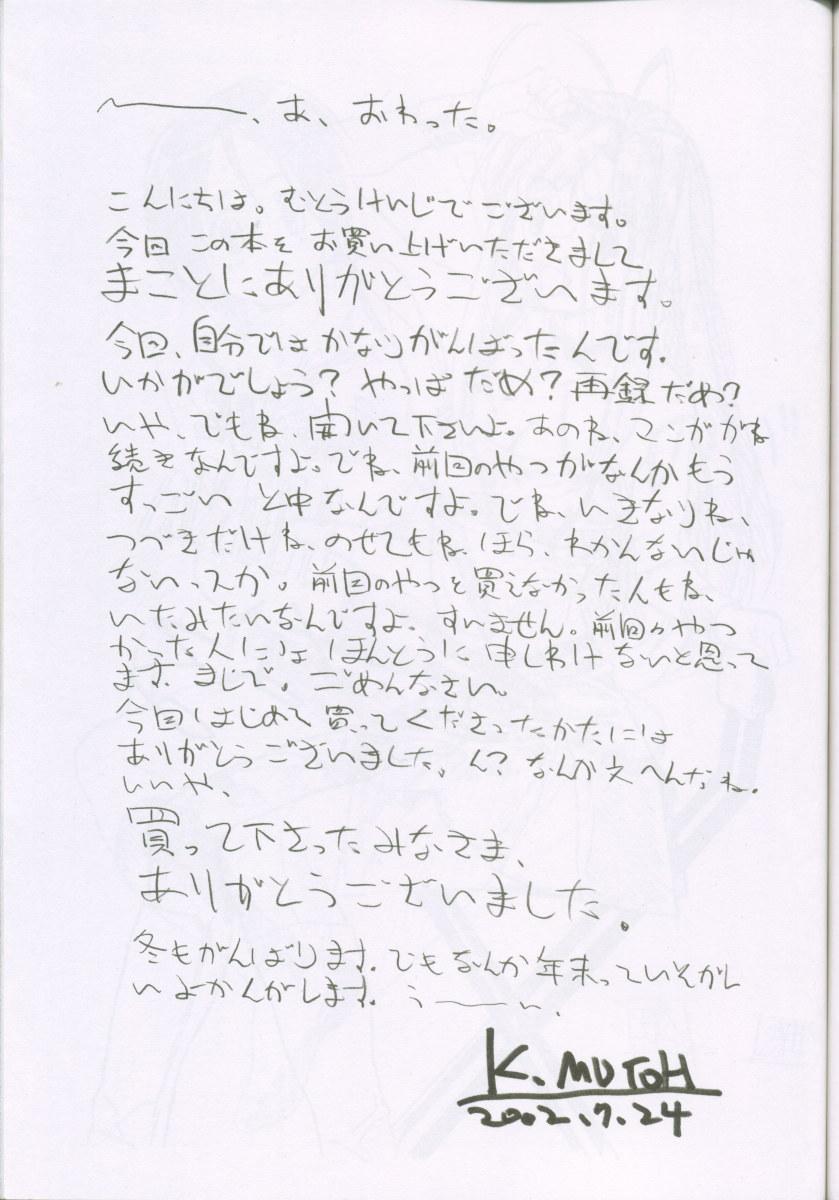 〜、あ、おわった。
こんにちは。むとうけいじでございます。
今回 この本を お買い上げいただきまして
まことにありがとうございます。
今回、自分では かなりがんばったんです。
いかがでしょう? やっぱ だめ? 再録だめ?
いや、でもね、聞いて下さいよ。あのね、マンガがね
続きなんですよ。でね、前回のやつがなんかもう
すっごい と中なんですよ。でね、いきなりね、
つづきだけね、のせてもね、ほら、わかんないじゃ
ないっスか。前回のやつを買えなかった人もね、
いたみたいなんですよ、すいません。前回のやつ
かった人には ほんとうに 申しわけないと思って
ます。まじで。ごめんなさい。
今回はじめて買ってくださったかたには
ありがとうございました。ん? なんか文へんだね。
いいや、
買って下さったみなさま、
ありがとうございました。
冬もがんばります。でもなんか年末っていそがし
いよかんがします。うーーい、
K. MUTOH
2002.7.24